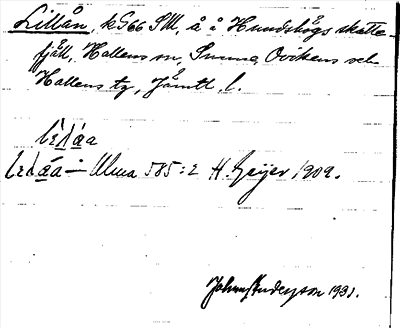 Lillån, kG66 SM, å å Hundshögs skatte-
fjäll, Hallens sn, Sunne, Ovikens och
Hallens tg, Jämtl. l.
lɩlåa
lɩlåa — Ulma 585:2 H. Geijer 1909.
Johnny Anderson 1931.